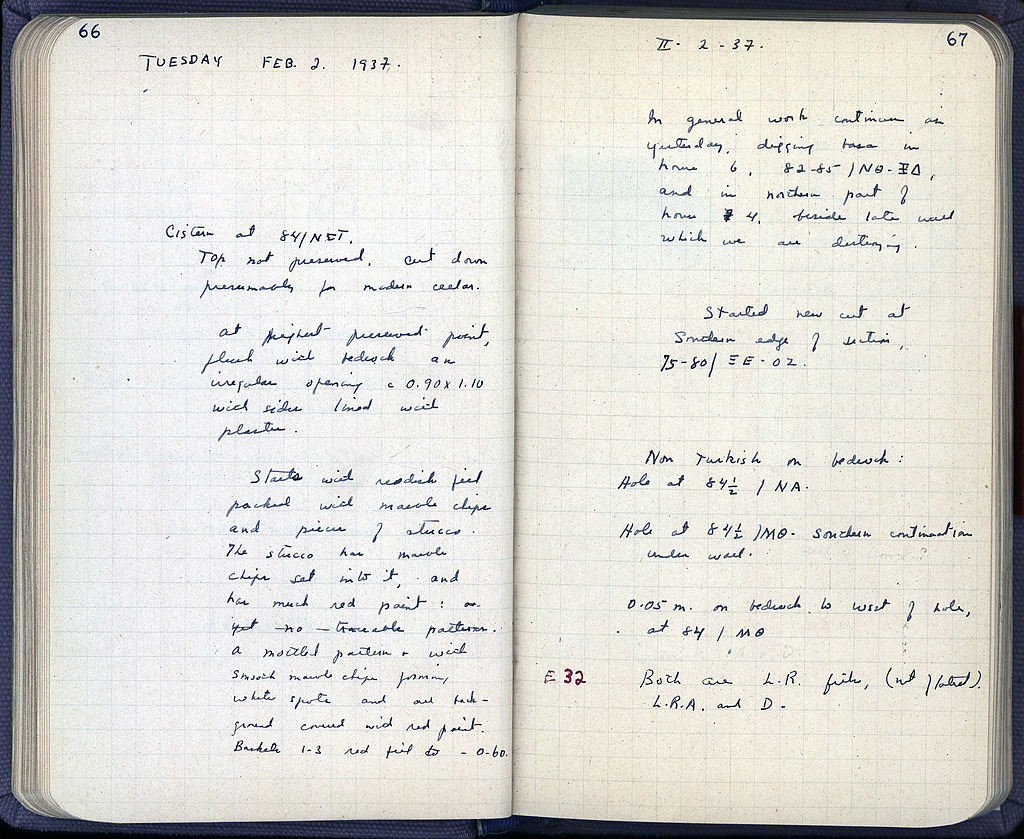 66
TUESDAY FEB. 2. 1937.
Cistern at 84/ΝΣΤ.
Top not preserved, cut down
presumably for modern cellar.
At highest preserved point,
flush with bedrock an
irregular opening c 0.90 x 1.10
with sides lined with
plaster.
Starts with reddish fill
packed with marble chips
and pieces of stucco.
The stucco has marble
chips set into it, and
has much red paint: as
yet no traceable pattern.
A mottled pattern - with
smooth marble chips forming
white spots and all back-
ground covered with red paint.
Baskets 1-3 red fill to - 0.60.
67
II - 2 - 37.
In general work continues as
yesterday, digging in
house 6, 82-85 / ΝΘ-ΞΔ,
and in northern part of
house 4, beside late wall
which we are destroying.
Started new cut at
Southern edge of section,
75-80/ ΞΕ - ΟΖ.
Non Turkish on bedrock:
Hole at 84½ / ΝΑ.
Hole at 84½ /ΜΘ - Southern continuation
under wall.
0.05 m. on bedrock to west of hole,
at 84 / ΜΘ
E 32 Both are L.R. fills, (not plotted).
L.R.A. and D -